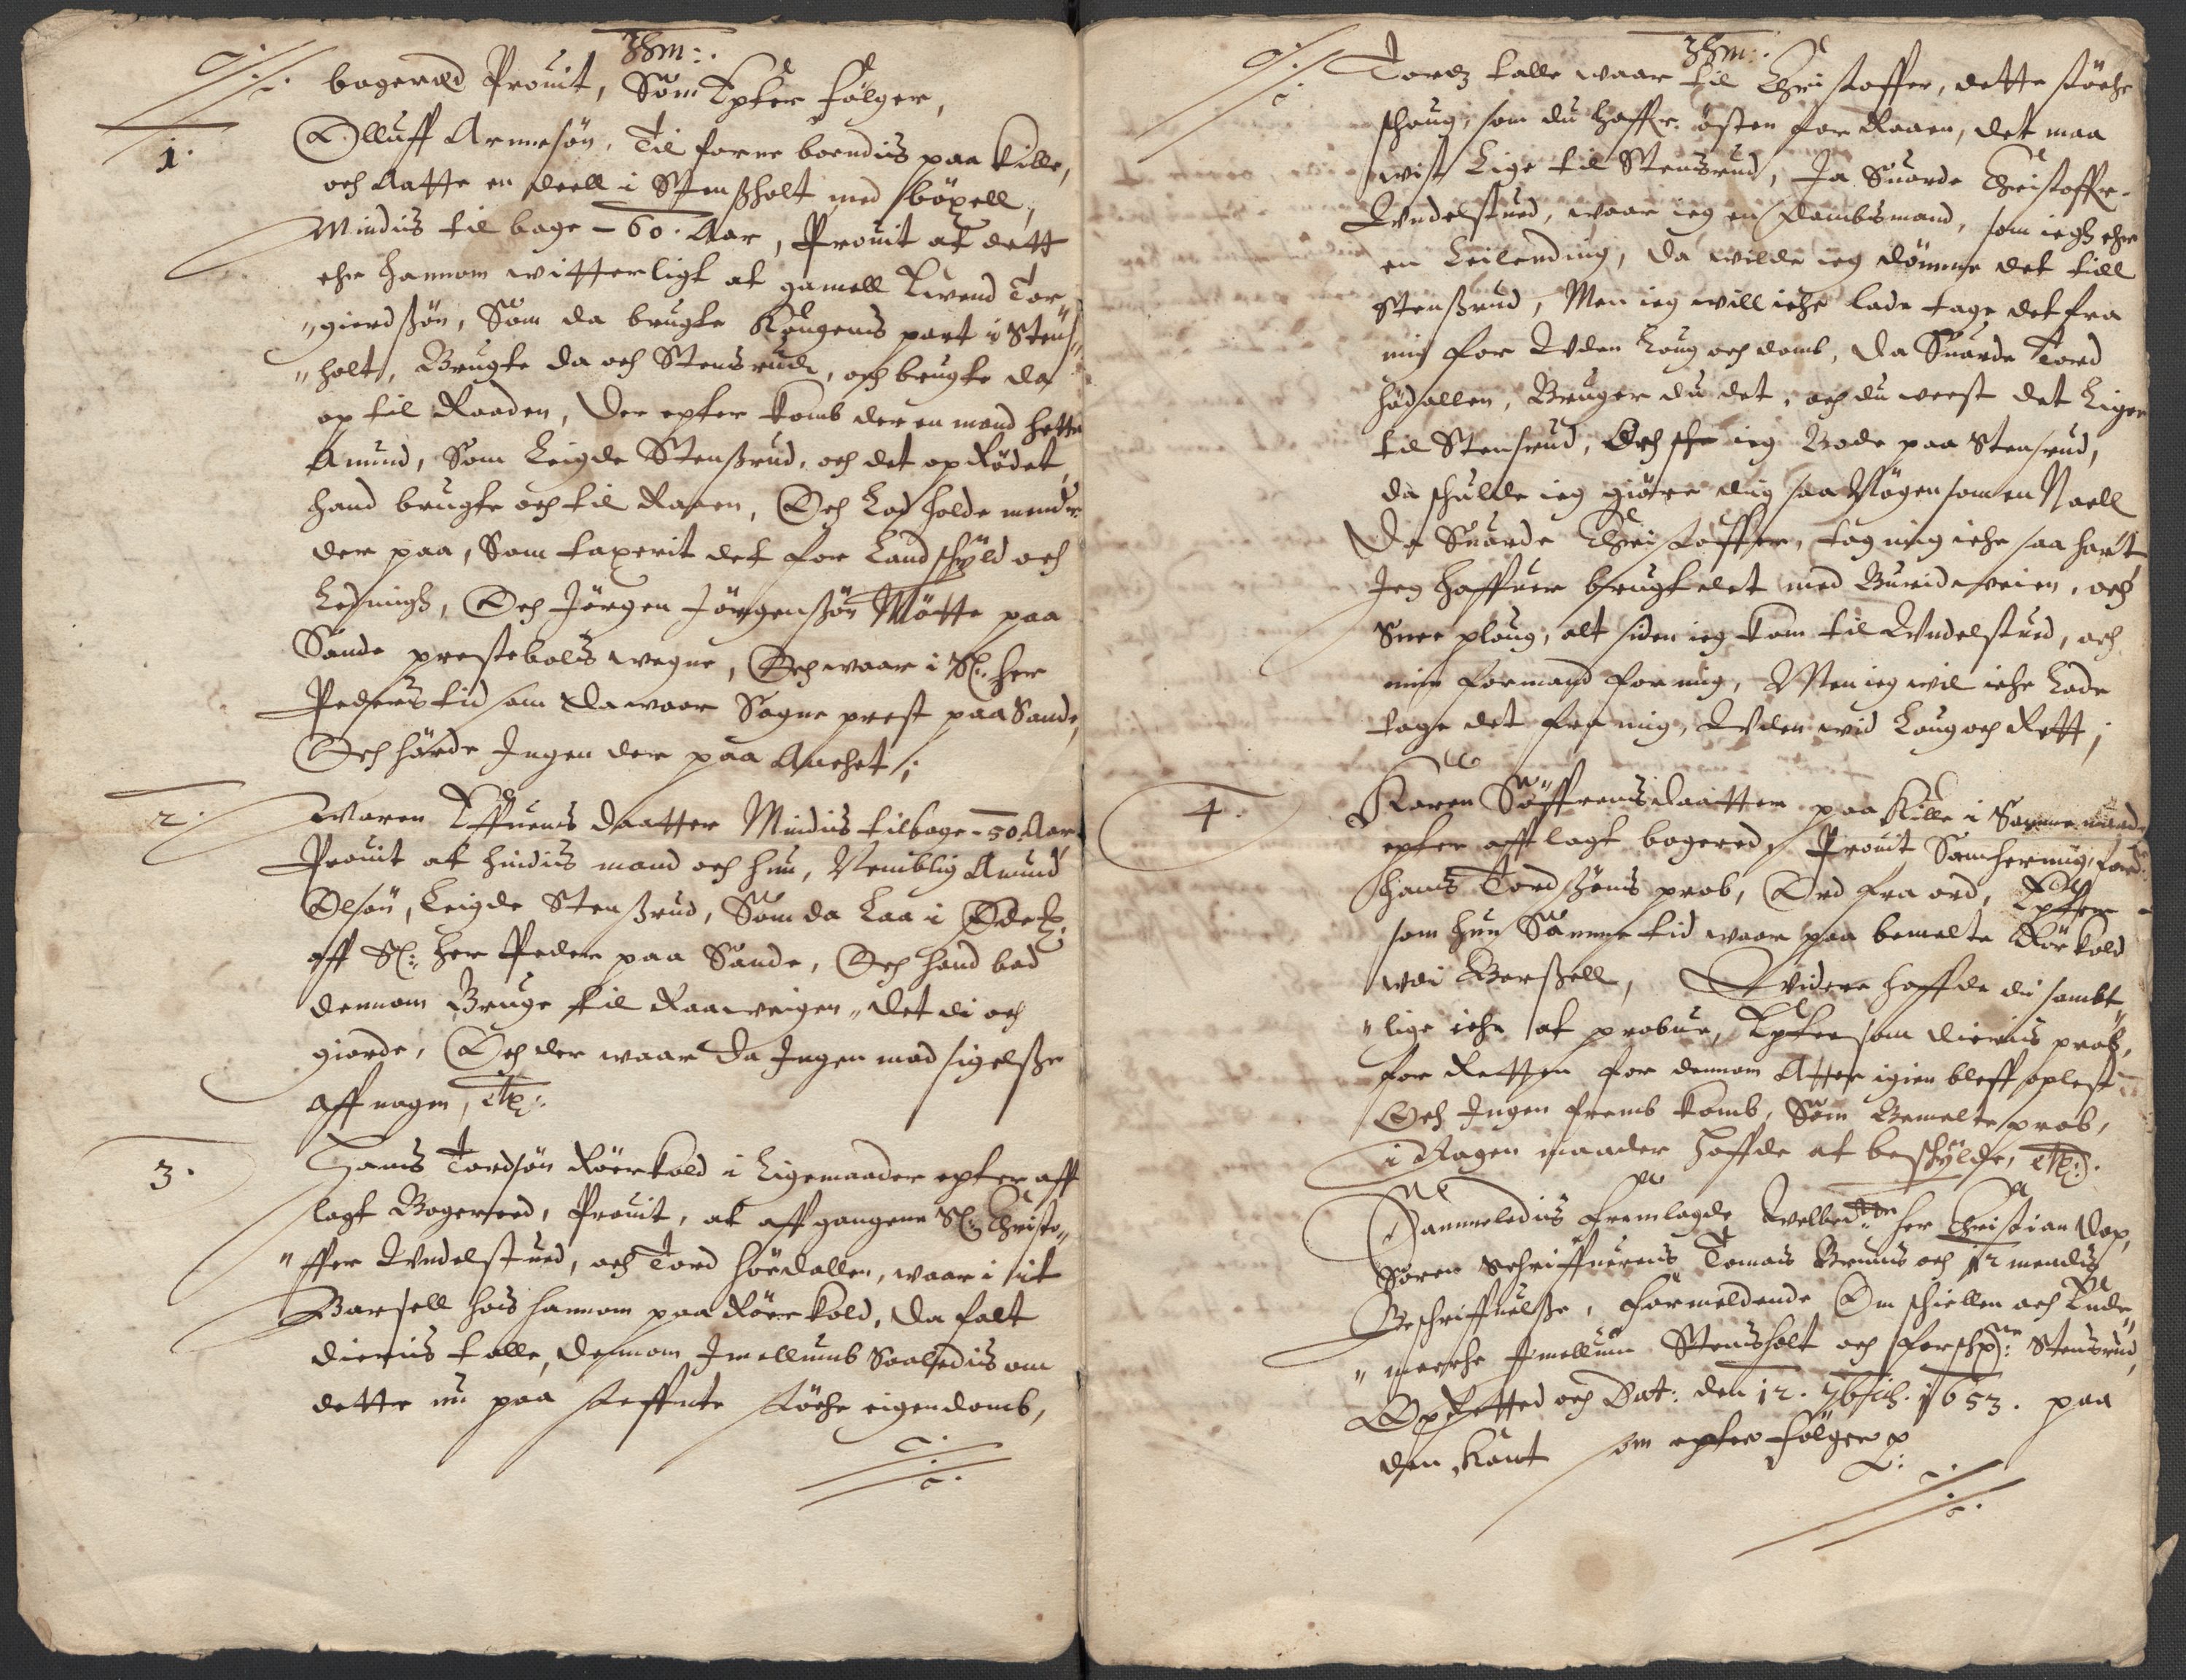 bogered Prouit, Som Epter følger,
1.
Olluff Arnesøn, Til forne boendis paa Kille,
och Aatte en deell i Stenßholt med bøxell,
Mindis til bage - 60. Aar, Prouit at dett
ehr hannom witterligt at gamell Eivend Tor
"gierdßøn, Som da brugte Kongens part i Stens"
"holt, Brugte da och Stensrud, och brugte da
op til Raaden, Der epter komb der en mand hette
Amund, Som Leigde Stenßrud, och det op Rødet,
hand brugte och til Raaen, Och Lod holde mend
der paa, Som taxerit det for Landschyld och
Ledningh, Och Jørgen Jørgenßøn Møtte paa
Sande prestebols wegne, Och waar i Sl: her
Peders tid som da waar Sogne prest paa Sande,
Och hørde Ingen der paa Anchet;
2.
Maren Effuens daatter Mindis tilbage - 50. Aar
Prouit at hindis mand och hun, Nemblig Amund
Olsøn, Leigde Stenßrud, Som da Laa i Øde
aff Sl: her Peder paa Sande, Och hand bad
dennom Bruge til Raaveigen, det di och
giorde, Och der waar da Ingen mod sigelsze
aff nogen, etc:
3.
Hans Tordsøn Røerkold i Ligemaader epter aff
lagt Bogereed, Prouit, at aff gangene Sl: Christo"
"ffer Undelstued, och Tord Hørdallen, waar i it
Barsell hois hannom paa Røerkold, da falt
dieris talle, dennom Imellumb Saaledis om
dette nu paa steffnte støche eigendomb,
Tordz talle waar til Christoffer, dette støche
schoug, som du haffr. østen for Raaen, det maa
wist Lige til Stensrud, Ja Suarde Christoffr.
Undelstued, waar ieg en Dombsmand, som iegh ehr
en Leilending, da wilde ieg dømme det till
Stenßrud, Men ieg will iche lade tage det fra
mig for Uden Loug och domb, da Suarde Tord
hødallen, Bruger du det, och du weest det Liger
til Stensrud, Och ieg Bode paa Stensrud,
da schulde ieg giøre dig saa Nøgen som en Naell
Da Suarde Christoffer, tag mig iche saa hart,
Jeg haffuer brugt det med Bureideveien, och
Snee ploug, alt siden ieg kom til Undelstued, och
min formand for mig, Men ieg wil iche Lade
tage det fra mig, Uden wid Loug och Rett;
4.
Karen Søffrensdaatter paa Kille i Samme maade
epter afflagt bogered, Prouit Somhermig, ford:
Hans Tordßøns prob, Ord fra ord, Epter
som hun Samme tid waar paa bemelte Røerkold
wdi Barßell, Widere haffde di sambt"
"lige iche at probue, Epter som dieris prob,
for Retten for dennom Atter igien bleff oplest
Och Ingen fremb komb, Som Bemelte prob,
i Nogen maader haffde at beschylde, etc:
Sammeledis fremlagde Welbed: her Christian Dop,
Søren Schriffuerens Tomas Bruuns och 12 mendis
Beschriffuelsze, formeldende Om schiellen och Ende"
"merche Imellum Stensholt och Stensrud,
Oprettet och Dat: den 12. 7bris. 1653. paa
den Kant som epter følger